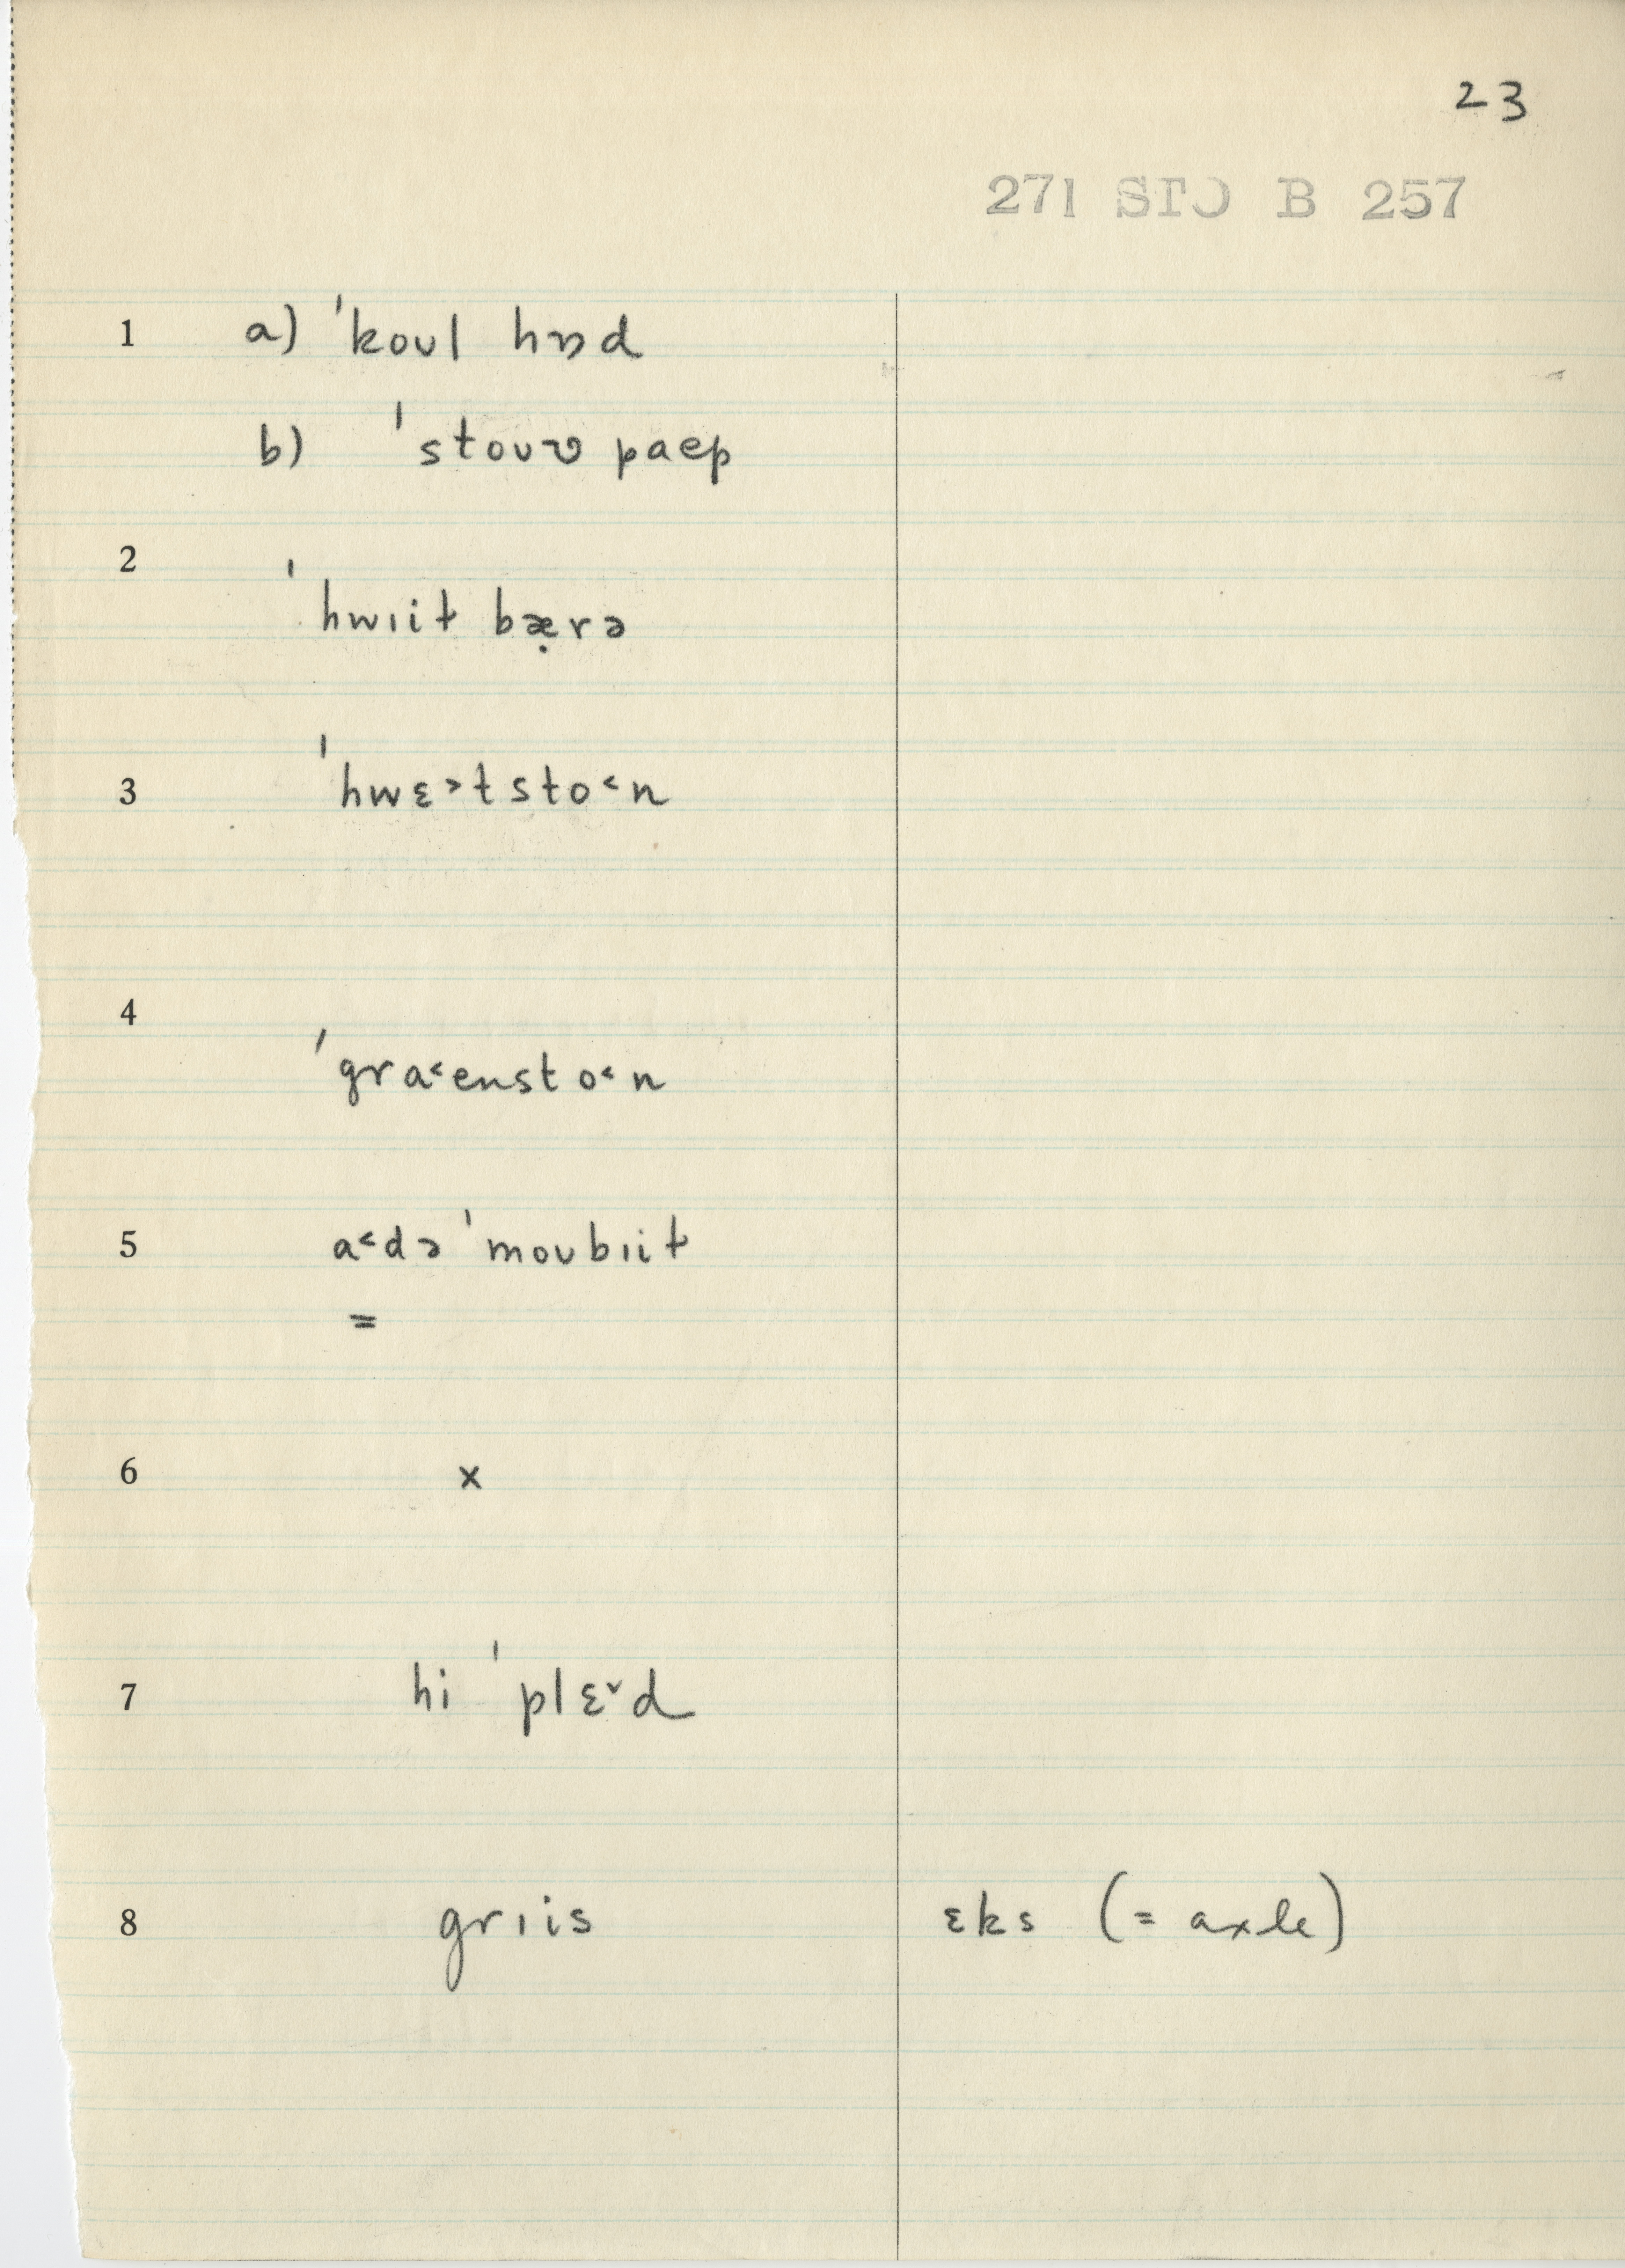 23
271 STO B 257
1 a) ˈkoʊl hɒd
b) ˈstoʊʋ paep
2
ˈhwɪit bæ̣rə
3 ˈhwɛ˃tsto˂n
4
ˈgra˂ensto˂n
5 a˂dəˈmoʊbɪit
=
6 x
7 hi ˈplɛ˅d
8 grɪis ɛks (= axle)